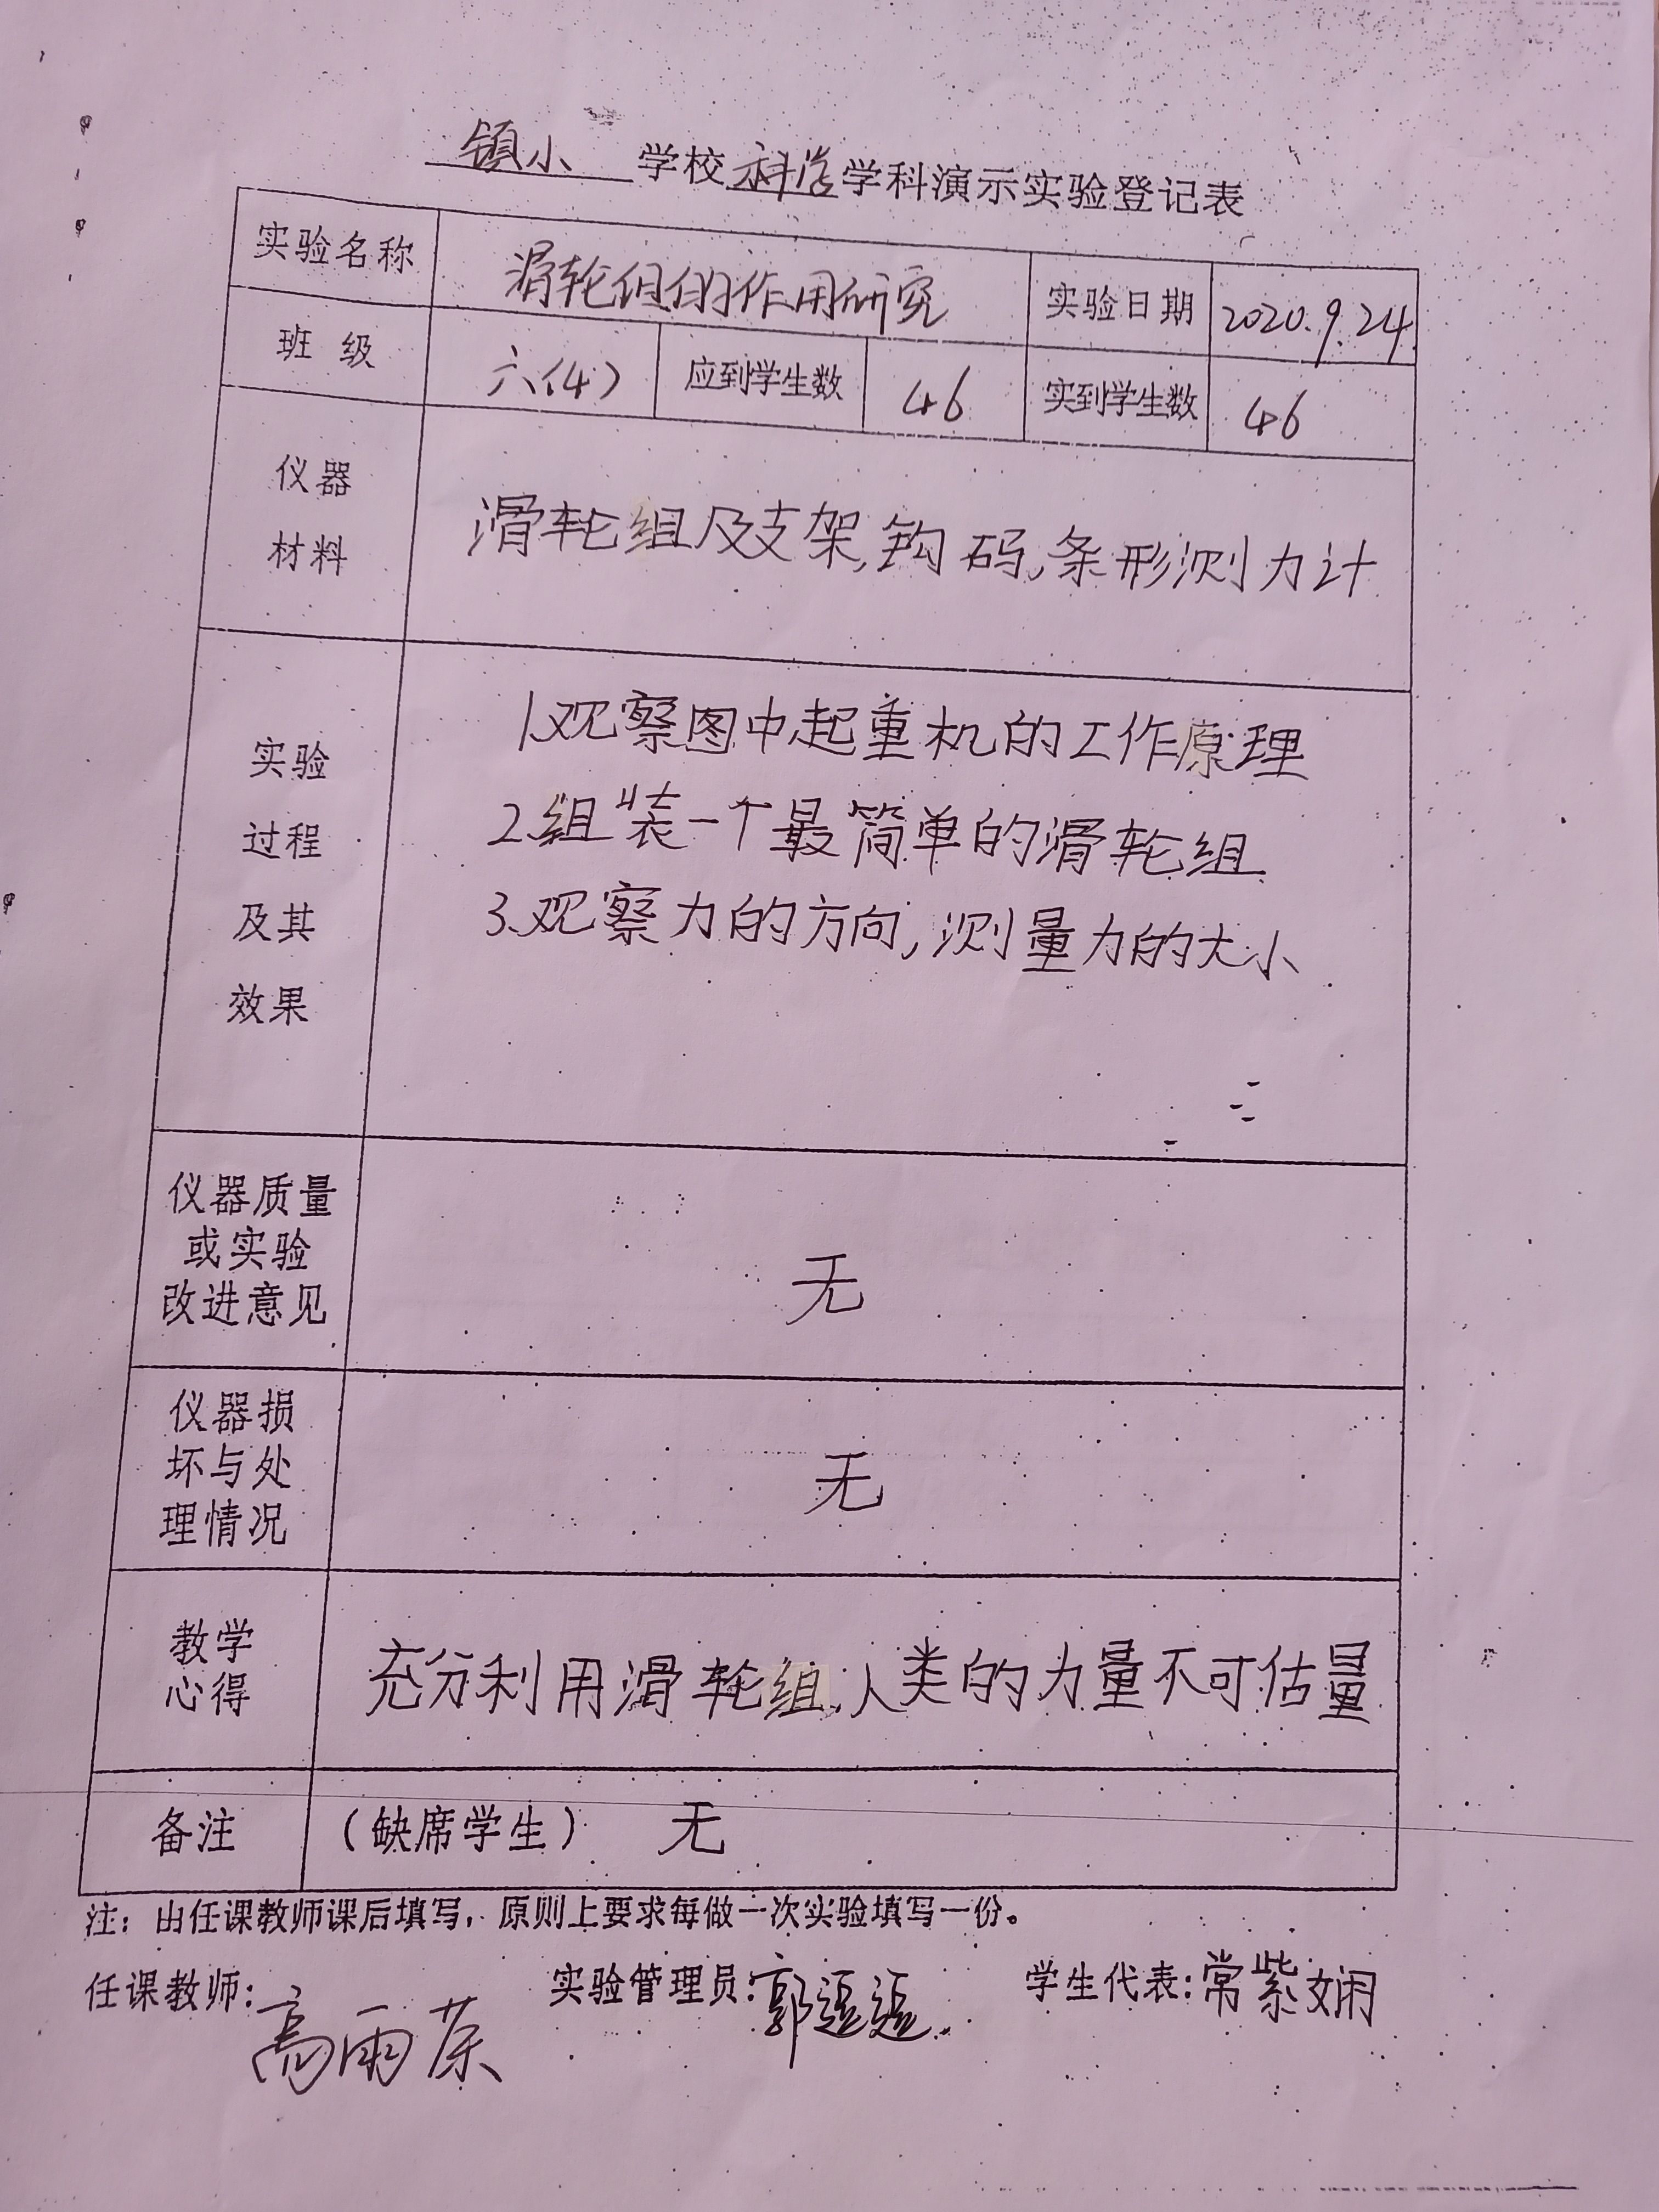 镇小 学校科学学科演示实验登记表
实验名称 滑轮组的作用研究 实验日期 2020.9.24.
班 级 六(4) 应到学生数 46 实到学生数 46
仪器
材料
滑轮组及支架,钩码,条形测力计
实验
过程
及其
效果
1.观察图中起重机的工作原理
2.组装一个最简单的滑轮组
3.观察力的方向,测量力的大小
仪器质量
或实验
改进意见
无
仪器损
坏与处
理情况
无
教学
心得
充分利用滑轮组,人类的力量不可估量
备注 (缺席学生) 无
注:由任课教师课后填写,原则上要求每做一次实验填写一份。
任课教师:高雨荼 实验管理员:郭 学生代表:常紫娴